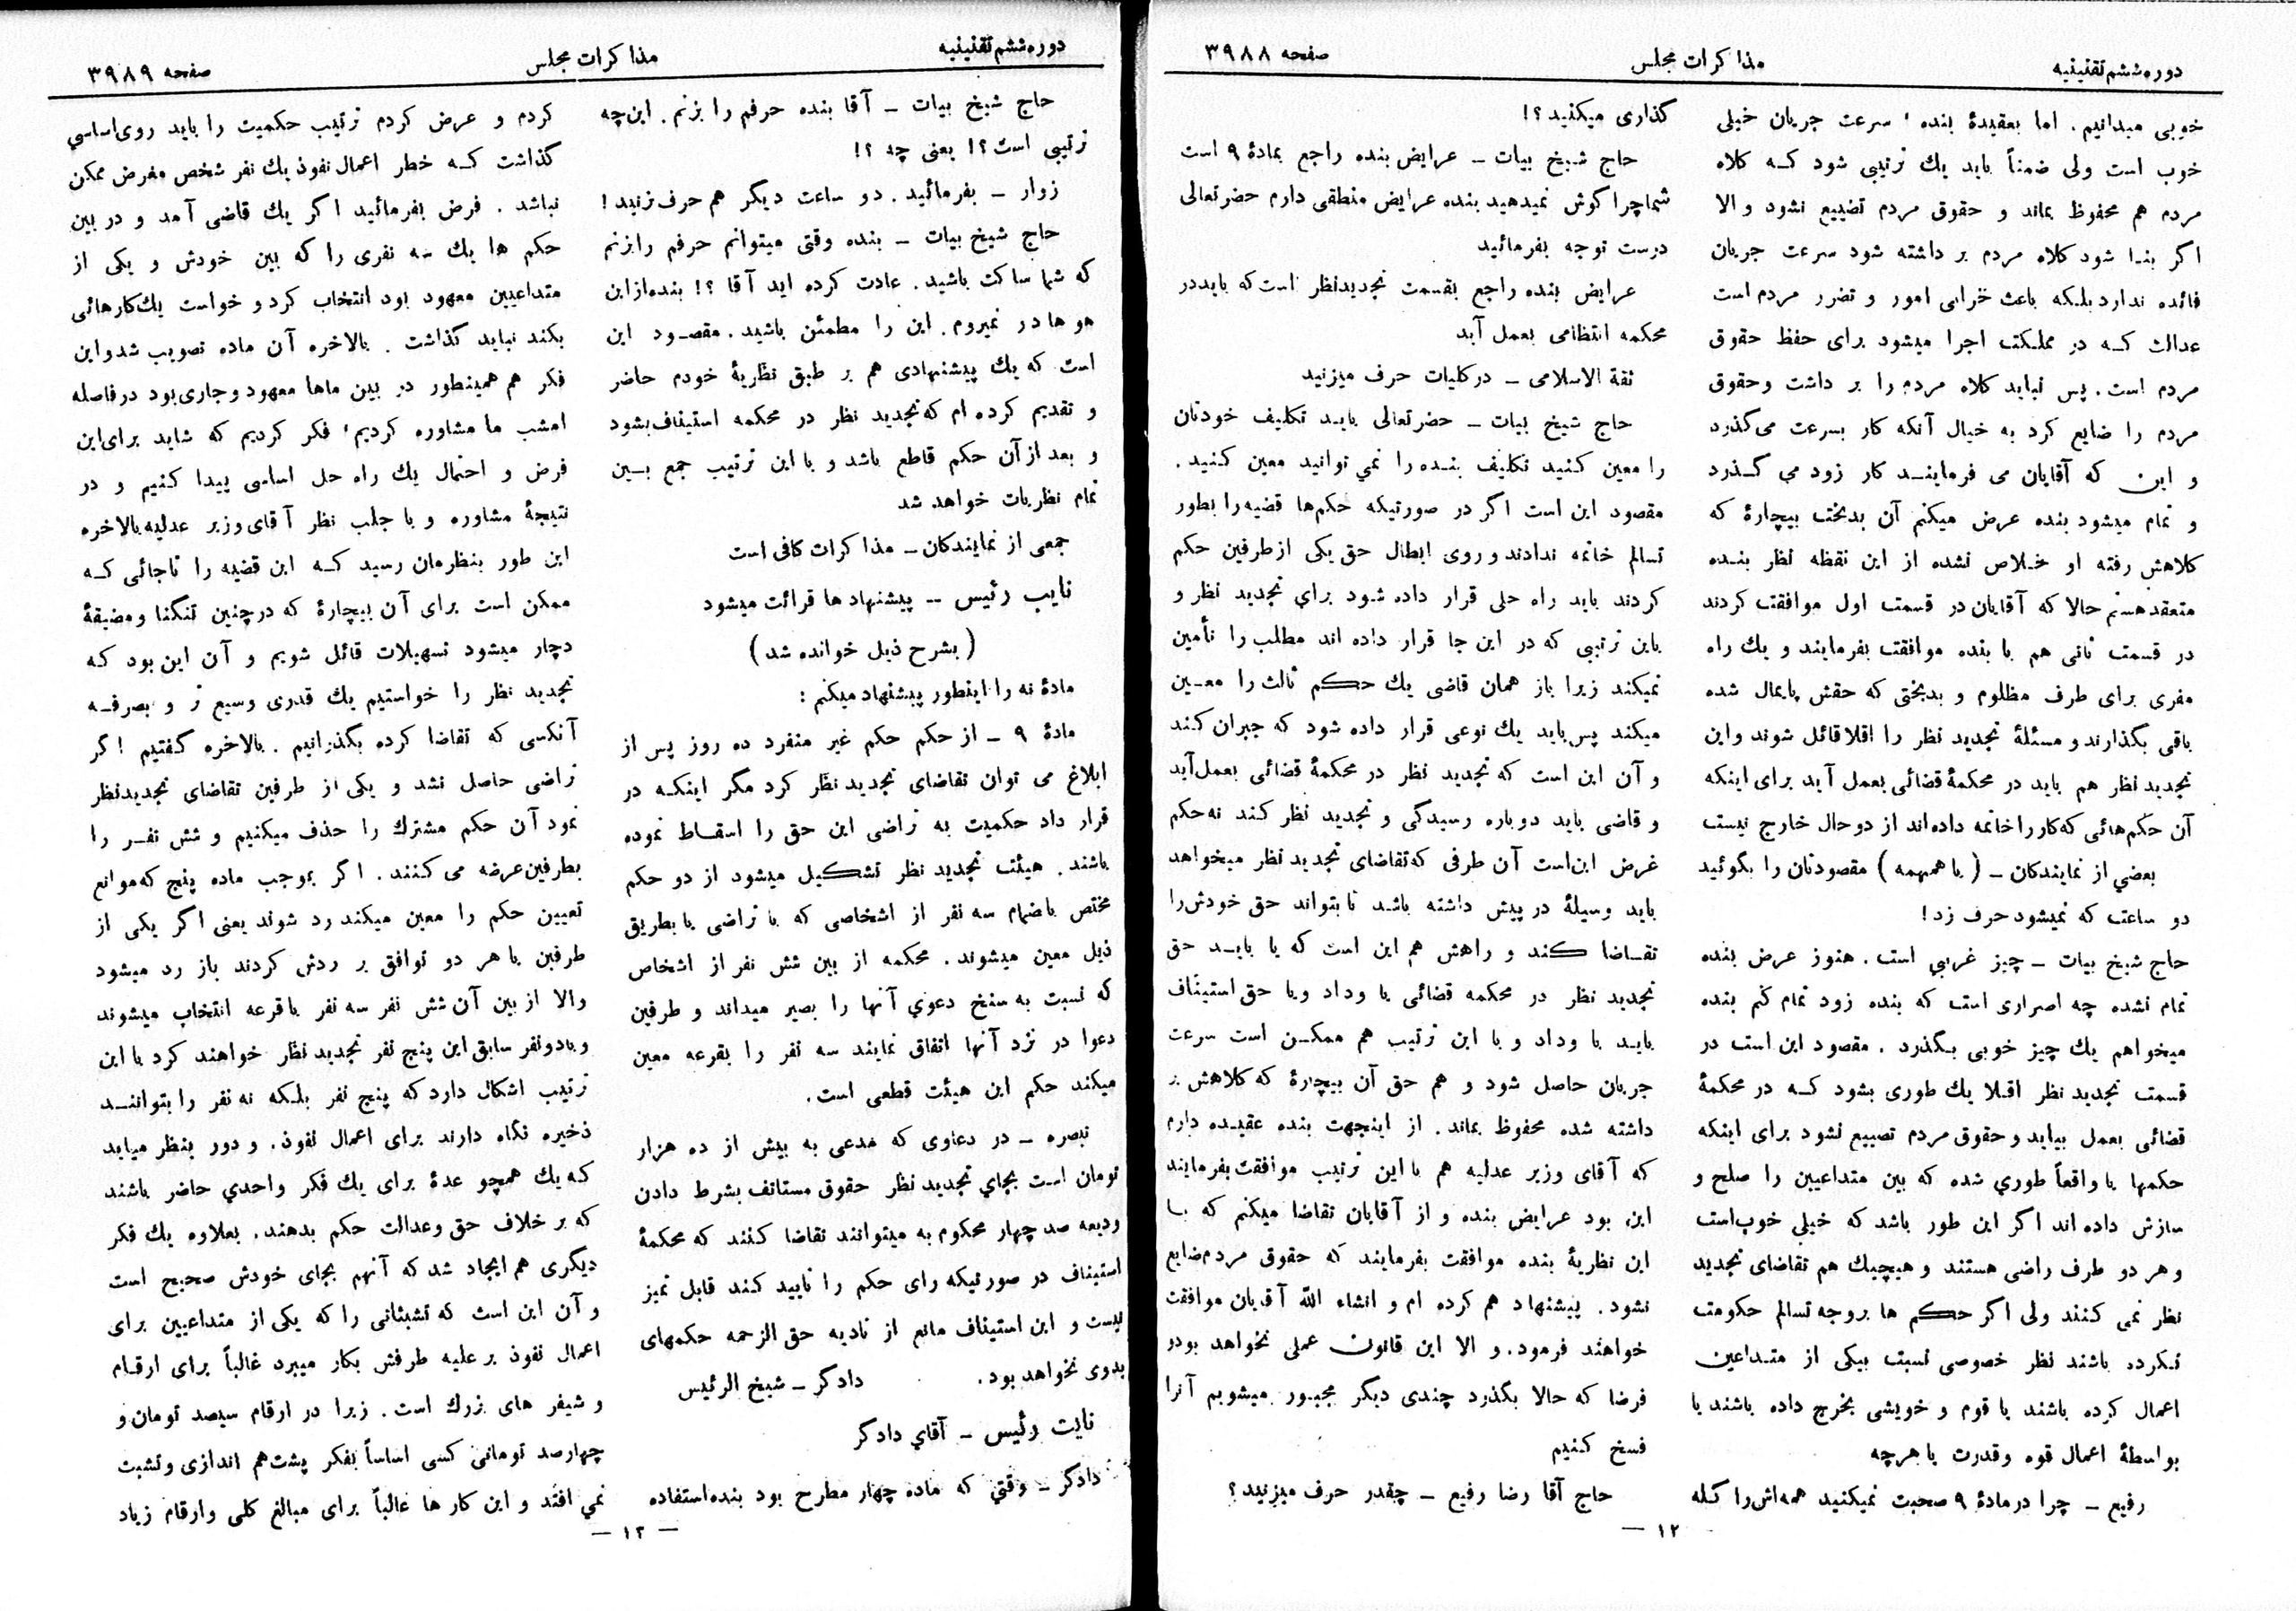 دوره ششم تقنینیه
مذاکرات مجلس
صفحه ۳۹۸۸
خوبی میدانیم. اما بعقیدهٔ بنده، سرعت جریان خیلی
خوب است ولی ضمناً باید یك ترتیبی شود کـه کلاه
مردم هم محفوظ بماند و حقوق مردم تضییع نشود و الا
اگر بنا شود کلاه مردم بر داشته شود سرعت جریان
فائده ندارد بلکه باعث خرابی امور و تضرر مردم است
عدالت کـه در مملکت اجرا میشود برای حفظ حقوق
مردم است. پس نباید کلاه مردم را بر داشت وحقوق
مردم را ضایع کرد به خیال آنکه کار بسرعت می‌گذرد
و این که آقایان می فرماینـد کار زود می گـذرد
و تمام میشود بنده عرض میکنم آن بدبخت بیچارهٔ که
کلاهش رفته او خلاص نشده از این نقطه نظر بنـده
متعقد هستم حالا که آقایان در قسمت اول موافقت کردند
در قسمت ثانی هم با بنده موافقت بفرمایند و یك راه
مفری برای طرف مظلوم و بدبختی که حقش پایمال شده
باقی بگذارند و مسئلهٔ تجدید نظر را اقلا قائل شوند واین
تجدید نظر هم باید در محکمهٔ قضائی بعمل آید برای اینکه
آن حکم‌هائی که کار را خاتمه داده‌اند از دو حال خارج نیست
بعضي از نمایندکان ـ (با همهمه) مقصودتان را بگوئید
دو ساعت که نمیشود حرف زد!
حاج شیخ بیات ـ چیز غریبي است. هنوز عرض بنده
تمام نشده چه اصراری است که بنده زود تمام کنم بنده
میخواهم یك چیز خوبی بگذرد. مقصود این است در
قسمت تجدید نظر اقلا یك طوری بشود کـه در محکمهٔ
قضائی بعمل بیاید و حقوق مردم تضییع نشود برای اینکه
حکمها یا واقعاً طوري شده که بین متداعیین را صلح و
سازش داده اند اگر این طور باشد که خیلي خوب است
و هر دو طرف راضی هستند و هیچیك هم تقاضای تجدید
نظر نمی کنند ولی اگر حکم ها بروجه تسالم حکومت
نکرده باشند نظر خصوصی نسبت بیکی از متـداعین
اعمال کرده باشند یا قوم و خویشی بخرج داده باشند یا
بواسطهٔ اعمال قوه وقدرت یا هرچه
رفیع ـ چرا در مادهٔ ۹ صحبت نمیکنید همه‌اش را کله
گذاری میکنید؟!
حاج شیخ بیات ـ عرایض بنده راجع بمادهٔ ۹ است
شما چرا کوش نمیدهید بنده عرایض منطقی دارم حضرتعالی
درست توجه بفرمائید
عرایض بنده راجع بقسمت تجدیدنظر است که باید در
محکمه انتظامی بعمل آید
ثقة الاسلامی ـ در کلیات حرف میزنید
حاج شیخ بیات ـ حضرتعالی بایـد تکلیف خودتان
را معین کنید تکلیف بنـده را نمي توانید معین کنید.
مقصود این است اگر در صورتیکه حکم‌ها قضیه را بطور
تسالم خاتمه ندادند و روی ابطال حق یکی از طرفین حکم
کردند باید راه حلی قرار داده شود براي تجدید نظر و
باین ترتیبی که در این جا قرار داده اند مطلب را تأمین
نمیکند زیرا باز همان قاضی یك حکم ثالث را معـین
میکند پس باید یك نوعی قرار داده شود که جبران کند
و آن این است که تجدید نظر در محکمهٔ قضائی بعمل آید
و قاضی باید دوباره رسیدگی و تجدید نظر کند نه حکم
غرض این‌است آن طرفی که تقاضای تجدید نظر میخواهد
باید وسیلهٔ در پیش داشته باشد تا بتواند حق خودش را
تقـاضا کند و راهش هم این است که یا بایـد حق
تجدید نظر در محکمه قضائی یا وداد ویا حق استیناف
بایـد با وداد و با این ترتیب هم ممکـن است سرعت
جریان حاصل شود و هم حق آن بیچارهٔ که کلاهش بر
داشته شده محفوظ بماند. از اینجهت بنده عقیـده دارم
که آقای وزیر عدلیه هم با این ترتیب موافقت بفرمایند
این بود عرایض بنده و از آقایان تقاضا میکنم که بـا
این نظریهٔ بنده موافقت بفرمایند که حقوق مردم ضایع
نشود. پیشنهاد هم کرده ام و انشاء الله آقایان موافقت
خواهند فرمود. و الا این قانون عملی نخواهد بود
فرضا که حالا بگذرد چندی دیگر مجبـور میشویم آنرا
فسخ کنیم
حاج آقا رضا رفیع ـ چقدر حرف میزنید؟
— ۱۲
دوره ششم تقنینیه
مذاکرات مجلس
صفحه ۳۹۸۹
حاج شیخ بیات ـ آقا بنده حرفم را بزنم. این چه
ترتیبی است؟! یعنی چه؟!
زوار ـ بفرمائید. دو ساعت دیگر هم حرف زنید!
حاج شیخ بیات ـ بنده وقتی میتوانم حرفم را بزنم
که شما ساکت باشید. عادت کرده اید آقا؟! بنده از این
هو ها در نمیروم. این را مطمئن باشید. مقصـود این
است که یك پیشنهادی هم بر طبق نظریهٔ خودم حاضر
و تقدیم کرده ام که تجدید نظر در محکمه استیناف بشود
و بعد از آن حکم قاطع باشد و با این ترتیب جمع بـین
تمام نظریات خواهد شد
جمعی از نمایندکان ـ مذاکرات کافی است
نایب رئیس -- پیشنهاد ها قرائت میشود
(بشرح ذیل خوانده شد)
مادهٔ نه را اینطور پیشنهاد میکنم:
مادهٔ ۹ ـ از حکم حکم غیر منفرد ده روز پس از
ابلاغ می توان تقاضای تجدید نظر کرد مگر اینکـه در
قرار داد حکمیت به تراضی این حق را اسقـاط نموده
باشند. هیئت تجدید نظر تشکیل میشود از دو حکم
مختص باضمام سه نفر از اشخاصی که با تراضی یا بطریق
ذیل معین میشوند. محکمه از بین شش نفر از اشخاص
که نسبت به سنخ دعوي آنها را بصیر میداند و طرفین
دعوا در نزد آنها اتفاق نمایند سه نفر را بقرعه معین
میکند حکم این هیئت قطعی است.
تبصره ـ در دعاوی که مدعی به بیش از ده هزار
تومان است بجاي تجدید نظر حقوق مستانف بشرط دادن
ودیعه صد چهار محکوم به میتوانند تقاضا کنند که محکمهٔ
استیناف در صورتیکه رای حکم را تایید کند قابل تمیز
نیست و این استیناف مانع از تادیه حق الزحمه حکمهای
بدوی نخواهد بود. دادکر ـ شیخ الرئیس
نایت رئیس ـ آقاي دادکر
دادکر ـ وقتي که ماده چهار مطرح بود بنده استفاده
کردم و عرض کردم ترتیب حکمیت را باید روی اساسي
گذاشت کـه خطر اعمال نفوذ یك نفر شخص مغرض ممکن
نباشد. فرض بفرمائید اکر یك قاضی آمد و در بین
حکم ها یك سه نفری را که بین خودش و یکی از
متداعیین معهود بود انتخاب کرد و خواست یك کارهائی
بکند نباید گذاشت. بالاخره آن ماده تصویب شد واین
فکر هم همینطور در بین ماها معهود وجاری بود در فاصله
امشب ما مشاوره کردیم، فکر کردیم که شاید برای این
فرض و احتمال یك راه حل اساسی پیدا کنیم و در
نتیجهٔ مشاوره و با جلب نظر آقای وزیر عدلیه بالاخره
این طور بنظرمان رسید کـه این قضیه را تاجائی کـه
ممکن است برای آن بیچارهٔ که در چنین تنگنا و مضیقهٔ
دچار میشود تسهیلات قائل شویم و آن این بود کـه
تجدید نظر را خواستیم یك قدری وسیع تر و بصرفـه
آنکسی که تقاضا کرده بگذرانیم. بالاخره گفتیم اگر
تراضی حاصل نشد و یکی از طرفین تقاضای تجدیدنظر
نمود آن حکم مشترك را حذف میکنیم و شش نفـر را
بطرفین عرضه می کنند. اگر بموجب ماده پنج که موانع
تعیین حکم را معین میکند رد شوند یعنی اگر یکی از
طرفین یا هر دو توافق بر ردش کردند باز رد میشود
والا از بین آن شش نفر سه نفر با قرعه انتخاب میشوند
و بادونفر سابق این پنج نفر تجدید نظر خواهند کرد با این
ترتیب اشکال دارد که پنج نفر بلکه نه نفر را بتواننـد
ذخیره نگاه دارند برای اعمال نفوذ. و دور بنظر میاید
کـه یك همچو عدهٔ برای یك فکر واحدي حاضر باشند
که بر خلاف حق وعدالت حکم بدهند. بعلاوه یك فکر
دیگری هم ایجاد شد که آنهم بجای خودش صحیح است
و آن این است که تشبثاتی را که یکی از متداعیین برای
اعمال نفوذ بر علیه طرفش بکار میبرد غالباً برای ارقـام
و شیفر های بزرك است. زیرا در ارقام سیصد تومان و
چهارصد تومانی کسی اساساً بفکر پشت هم اندازی وتشبث
نمي افتد و این کار ها غالباً برای مبالغ کلی وارقام زیاد
— ۱۳ —